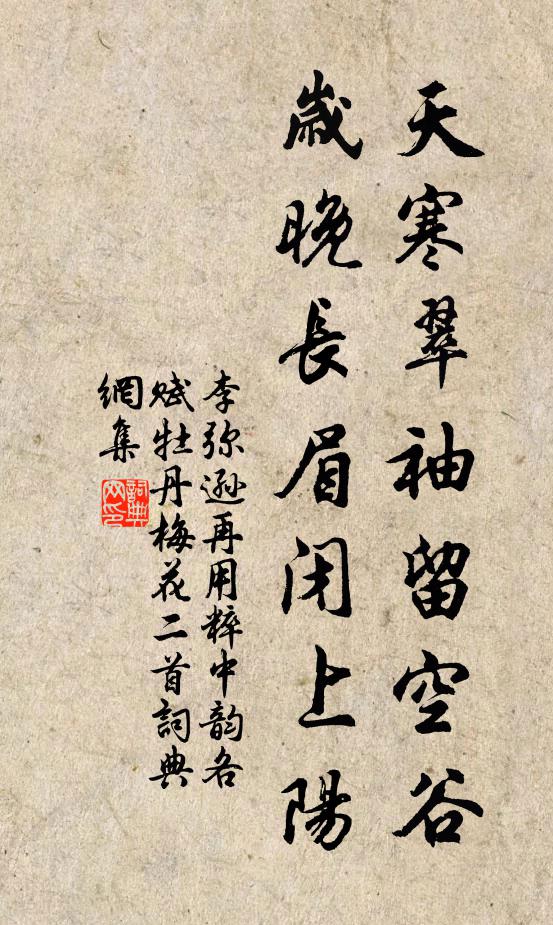 天寒翠袖留空谷
歲晚長眉閉上陽
李弥遜再用粹中韵各
賦牡丹梅花二首詞典
網集
詞典網印